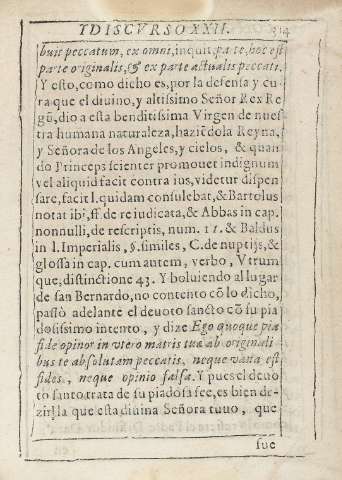 YDISCVRSO XXII. 314
buit peccatum, ex omni, inquit, parte, hoc est
parte originalis, & ex parte actualis peccati.
Y esto, como dicho es, por la defensa y cu
ra que el diuino, y altissimo Señor Rex Re
gũ, dio a esta benditissima Virgen de nues
tra humana naturaleza, haziẽdola Reyna,
y Señora de los Angeles, y cielos, & quan
do Princeps scienter promouet indignum
vel aliquid facit contra ius, videtur dispen
sare, facit l. quidam consulebat, & Bartolus
notat ibi, ff. de re iudicata, & Abbas in cap.
nonnulli, de rescriptis, num. 11. & Baldus
in l. Imperialis, §. similes, C. de nuptijs, &
glossa in cap. cum autem, verbo, Vtrum
que, distinctione 43. Y boluiendo al lugar
de san Bernardo, no contento cõ lo dicho,
passò adelante el deuoto sancto cõ su pia
dosissimo intento, y dize Ego quoque pia
fide opinor in vtero matris tuæ ab originali
bus te absolutam peccatis, neque vana est
fides, neque opinio falsa. Y pues el deuo
to santo trata de su piadosa fee, es bien de-
zirla que esta diuina Señora tuuo, que
fue